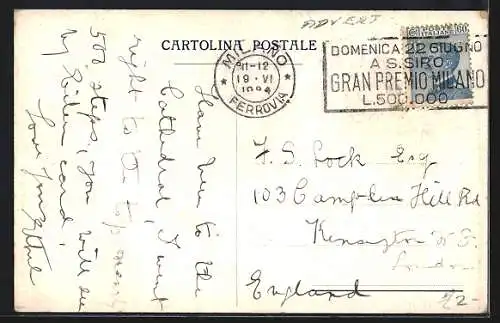 ADVERT
CARTOLINA POSTALE
MILANO
11-12
19·VI
1924
FERROVIA
DOMENICA 22 GIUGNO
A S. SIRO
GRAN PREMIO MILANO
L.500.000
Have been to the
Cathedral, I went
right to the top
500 steps, you will see
by card.
Love
F. S. Cock Esq
103 Campden Hill Rd
Kensington W.
London
England
£2-